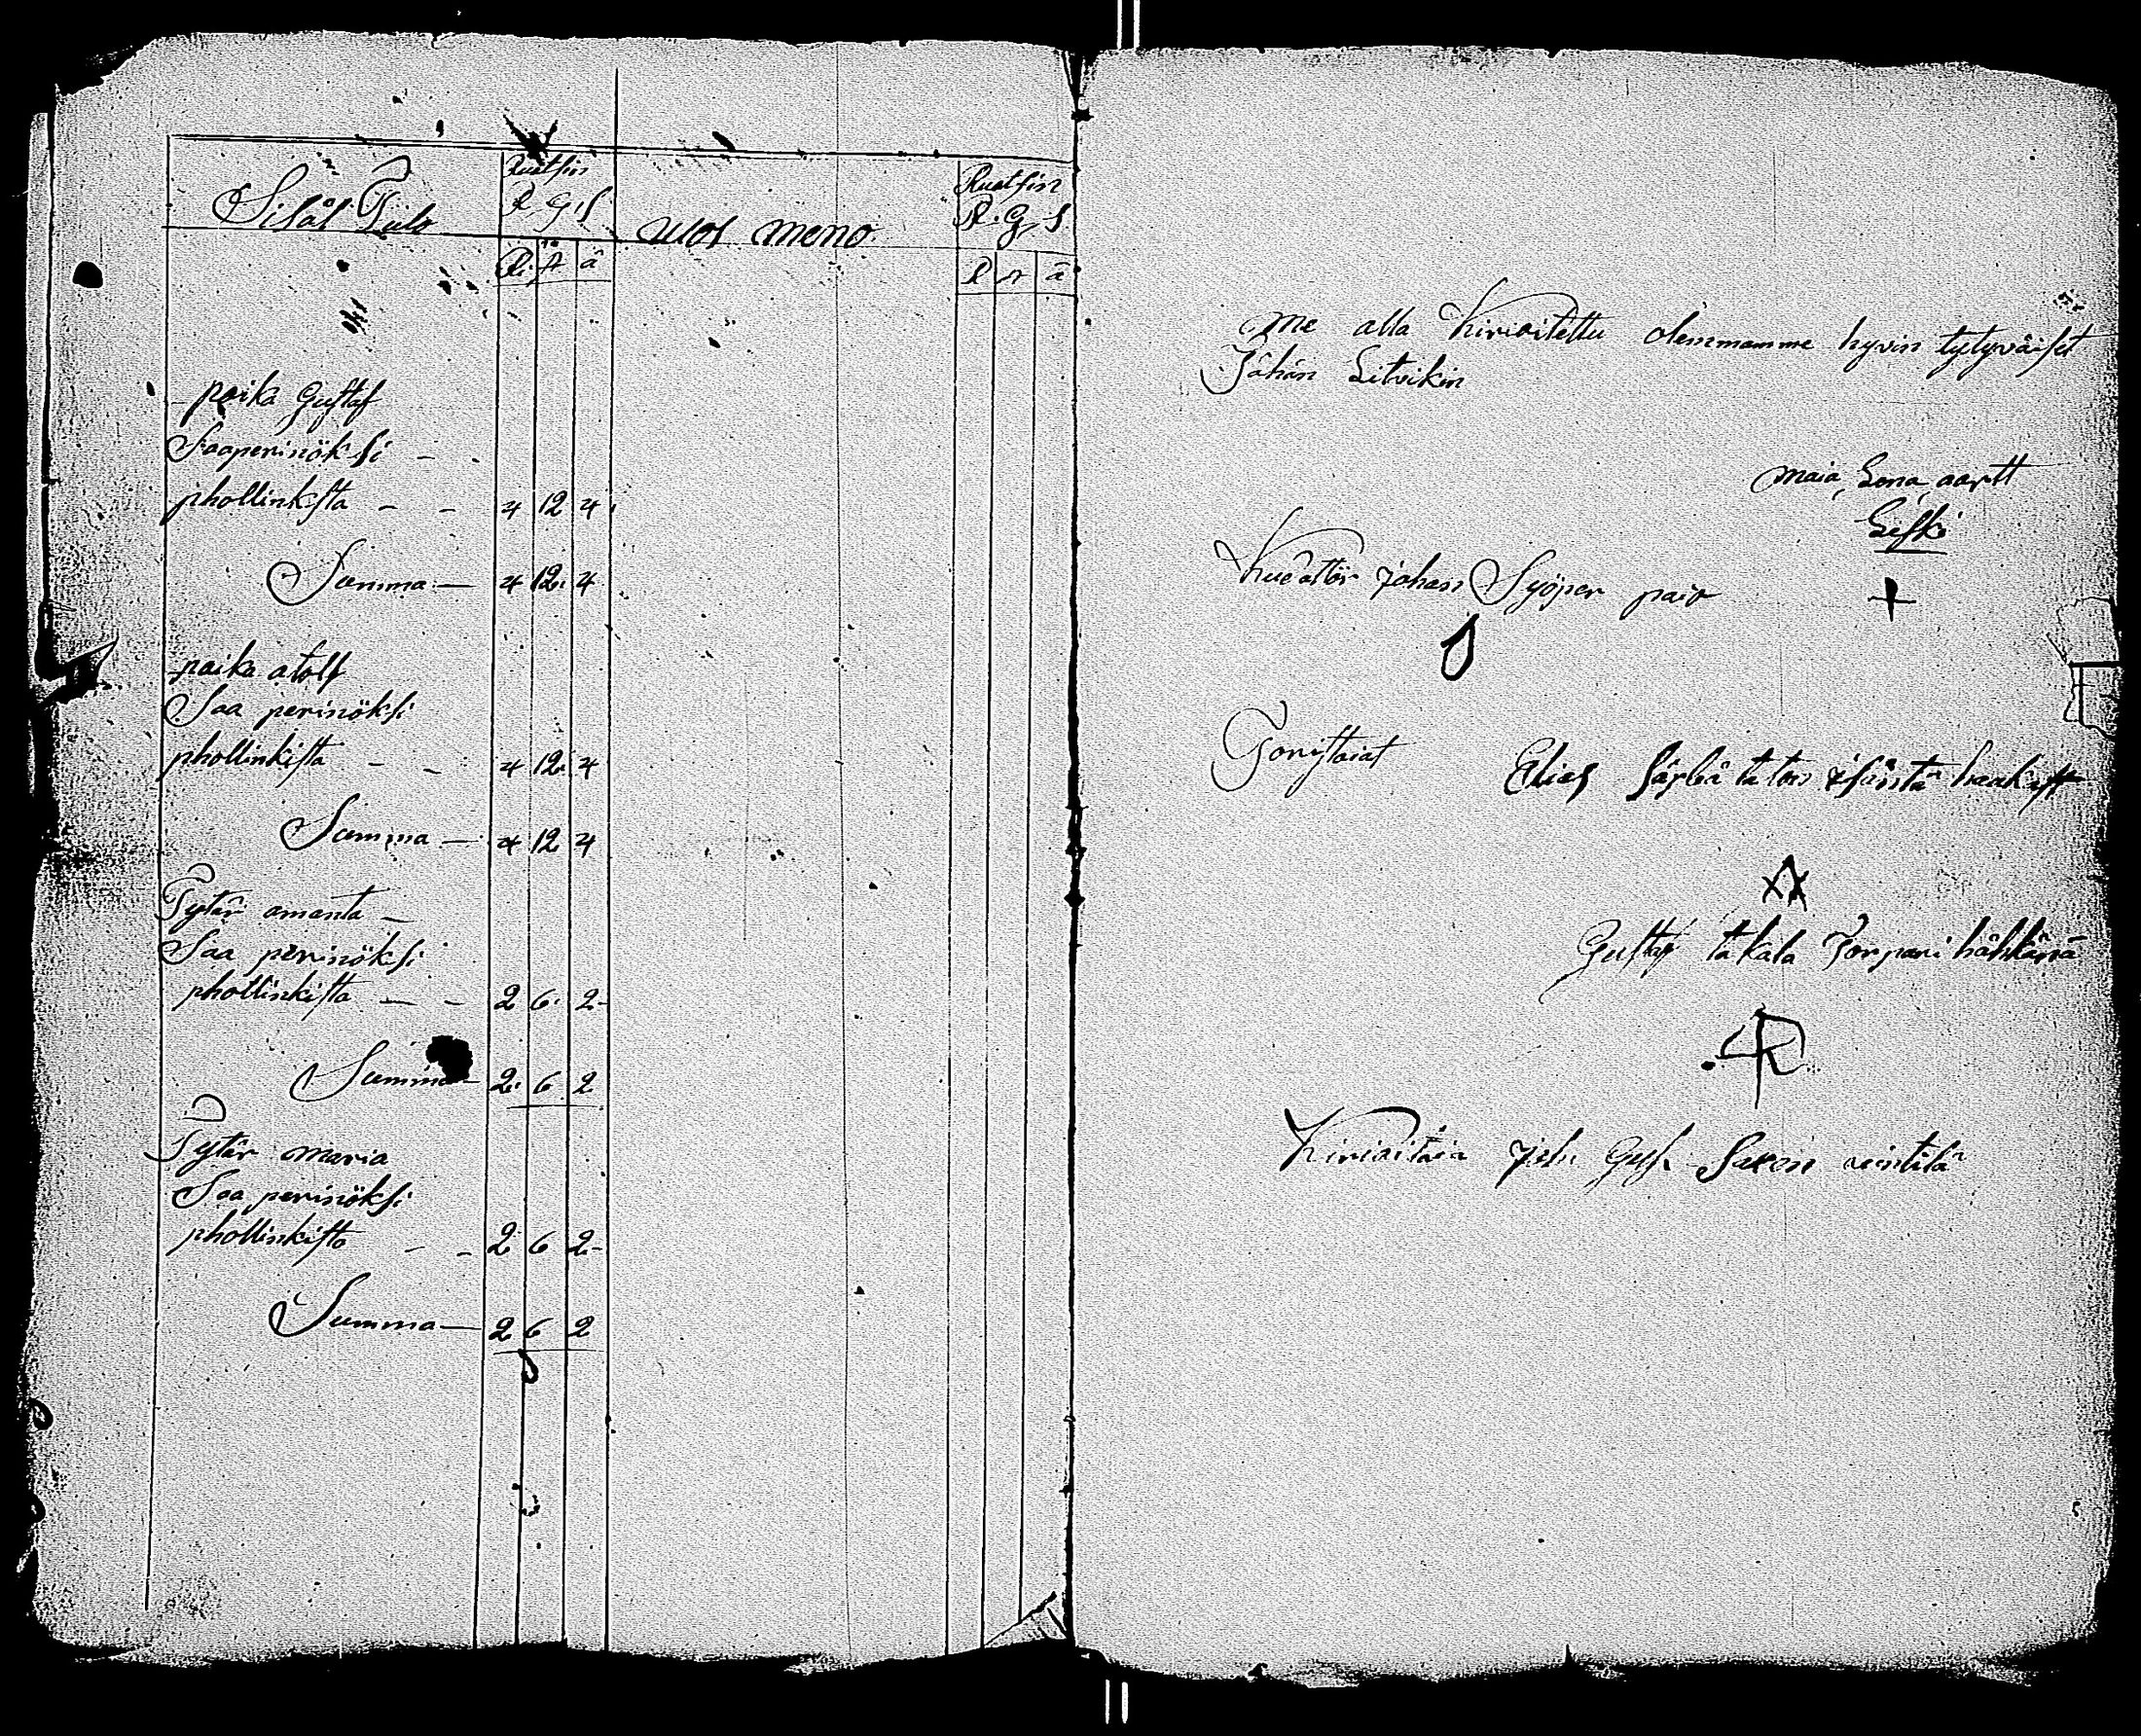 Sisäl Tulo
Ruatsin
R. G. S
Ulos meno
Ruatsin
R. G. S.
R. r ä
R r ä
poika Gustaf
Saaperinöksi - -
phollinkista - - 4 12 4
Summa — 4 12. 4
poika atolf
Saa perinöksi
phollinkista - - 4 12. 4
Summa — 4 12 4
Tytär amanta -
Saa perinöksi
phollinkista - - 2 6. 2-
Summa — 2. 6 2
Tytär maria
Saa perinöksi
phollinkista - - 2 6 2-
Summa — 2 6 2
me alla Kirioitettu olemmamme hyvin tytyväiset
Jähän Litvikin
maia Lena aartt
Leski
+
johan Syöper paio
Toristaiat
Elias isäntä
Gustaf takala Torpari
Kirioitaia Joh. Gust.